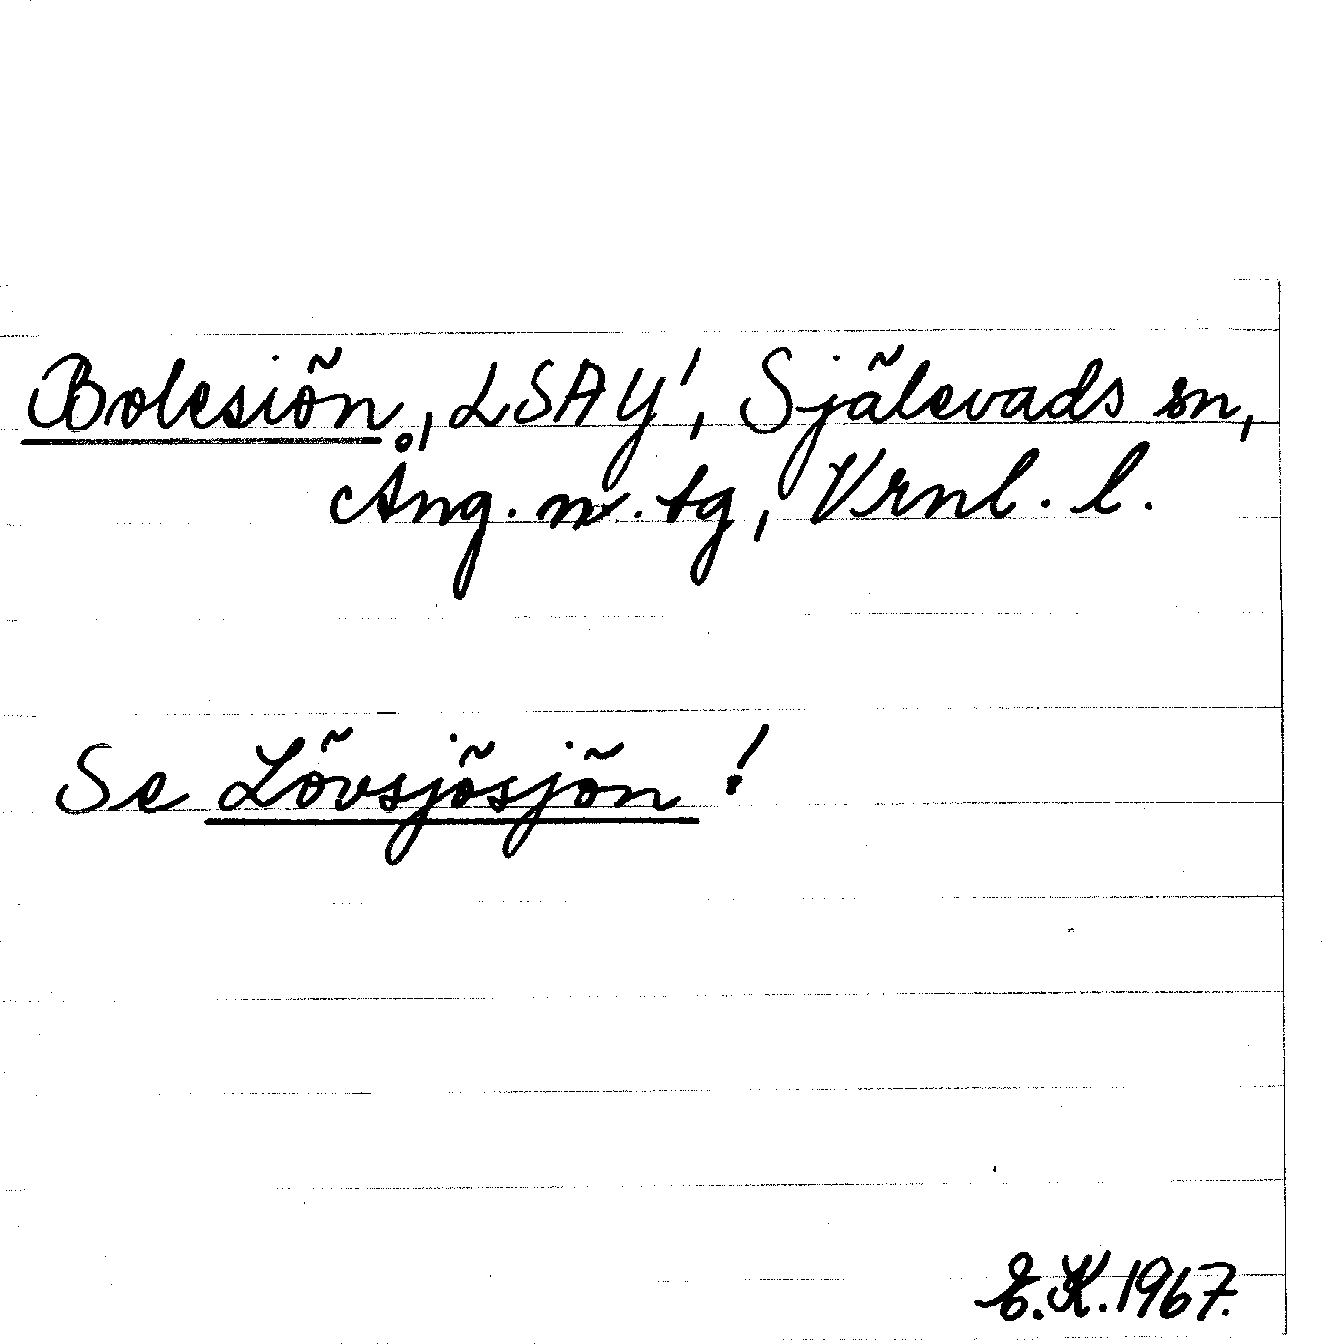 Bolesiön, LSAY', Själevads sn,
Ång. m. tg, Vrnl. l.
Se Lövsjösjön!
E.K. 1967.